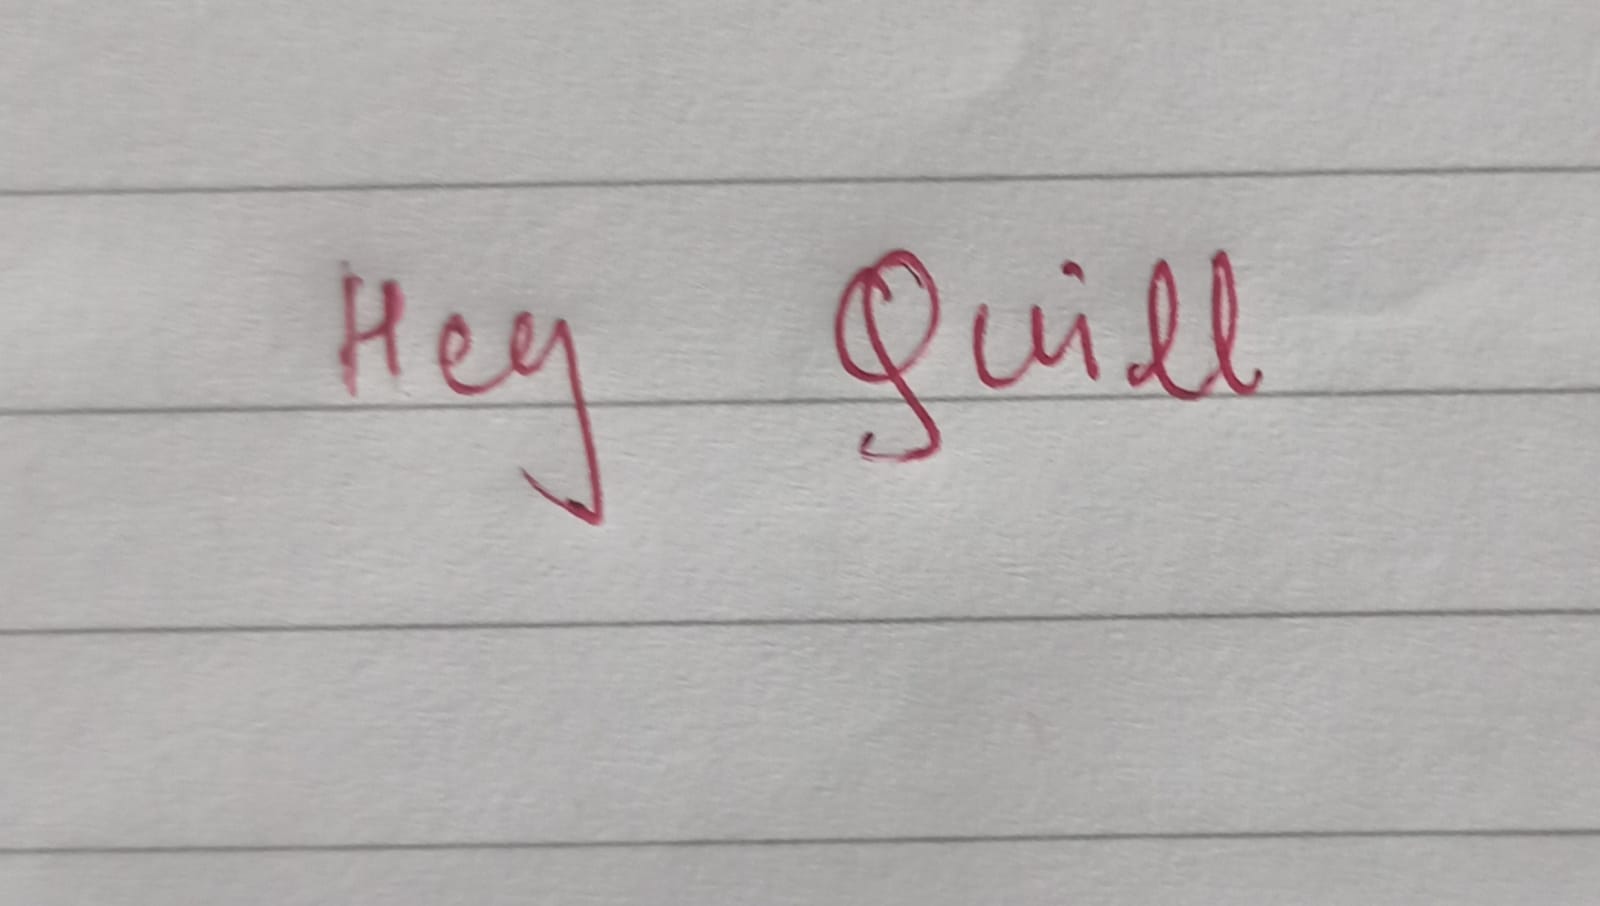 Hey Quill